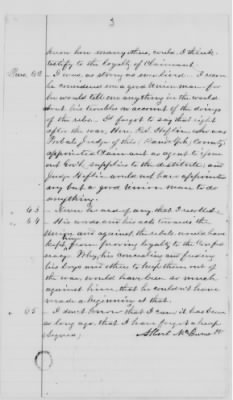 3
know how many others, could I think,
testify to the loyalty of Claimant.
Ques. 62 I was, as strong as we lived. I know
he considered me a good Union man for
he would tell me anything in the world
about his troubles on account of the doings
of the rebs. I forgot to say that right
after the war, Hon. Heflin who was
Probate Judge of this Randolph, County
appointed Claimant as agent to give
out Govt. supplies to the destitute, and
Judge Heflin would not have appointed
any but a good Union man to do
anything.
63 Never he was of any that I recollect.
64 His words and his acts towards the
Union and against the rebels would have
kept him from proving loyalty to the Confed-
eracy. Why, his concealing and feeding
his boys and others to keep them out of
the war, would have been so much
against him, that he couldn't have
made a beginning at that.
65 I don't know that I can, it has been
so long ago, that I have forgot a heap
(Signed) Albert